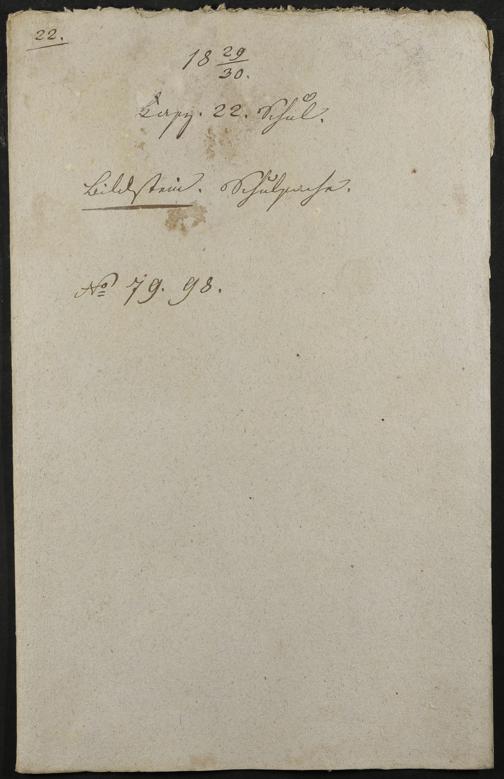 22.
18 29/30.
Fasz. 22. Schul.
Bildstein. Schulsache.
No 79. 98.